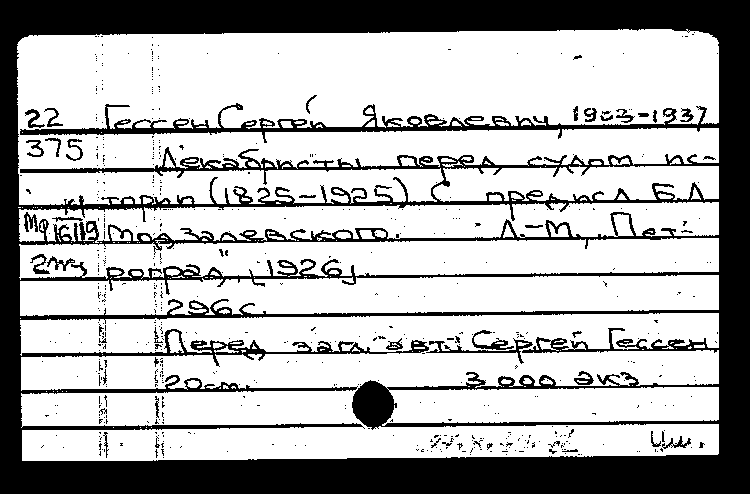 22 Гессен Сергей Яковлевич, 1903-1937
375 Декабристы перед судом ис-
тории (1825-1925) С предисл. Б.Л.
16119 Модзалевского. Л.-М., „Пет-
роград", [1926].
296 с.
Перед загл. авт.: Сергей Гессен.
20 см. 3 000 экз.